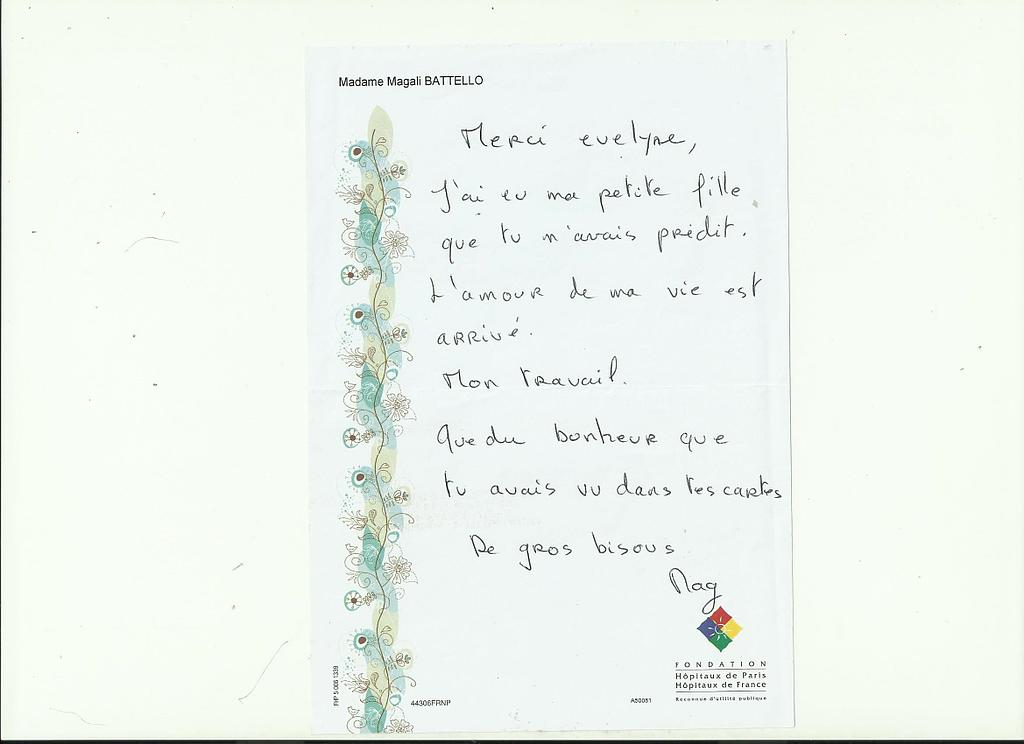 Madame Magali BATTELLO
Merci evelyne,
J'ai eu ma petite fille
que tu m'avais prédit.
L'amour de ma vie est
arrivé.
Mon travail.
Que du bonheur que
tu avais vu dans tes cartes
De gros bisous
Mag
FONDATION
Hôpitaux de Paris
Hôpitaux de France
Reconnue d'utilité publique
44306FRNP
A50051